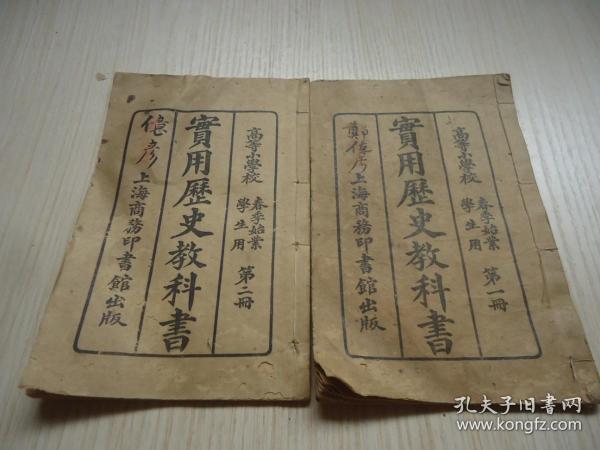 高等小學校 春季始業 學生用 第一冊
實用歷史教科書
鄭億彥
上海商務印書館出版
高等小學校 春季始業 學生用 第二冊
實用歷史教科書
億彥
上海商務印書館出版
孔夫子旧书网
www.kongfz.com